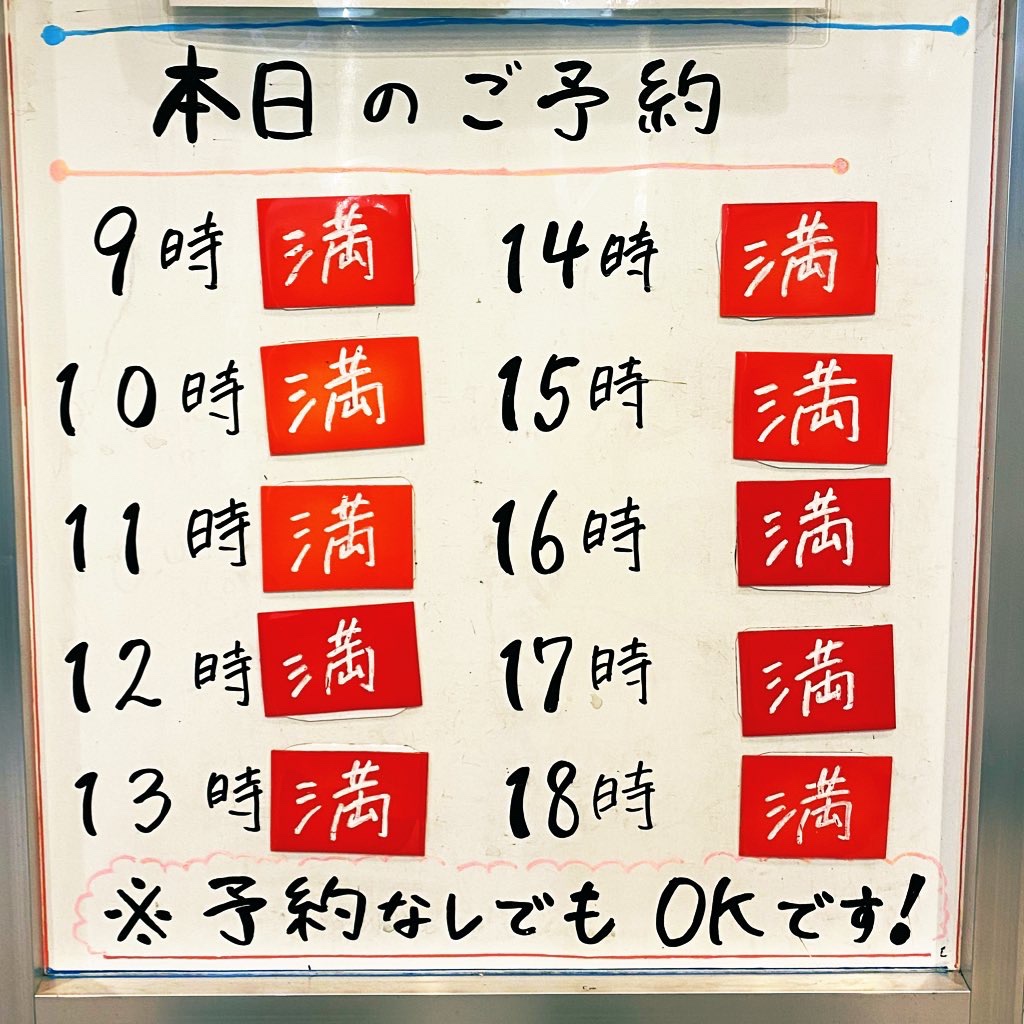 本日のご予約
9時 満 14時 満
10時 満 15時 満
11時 満 16時 満
12時 満 17時 満
13時 満 18時 満
※予約なしでもOKです!